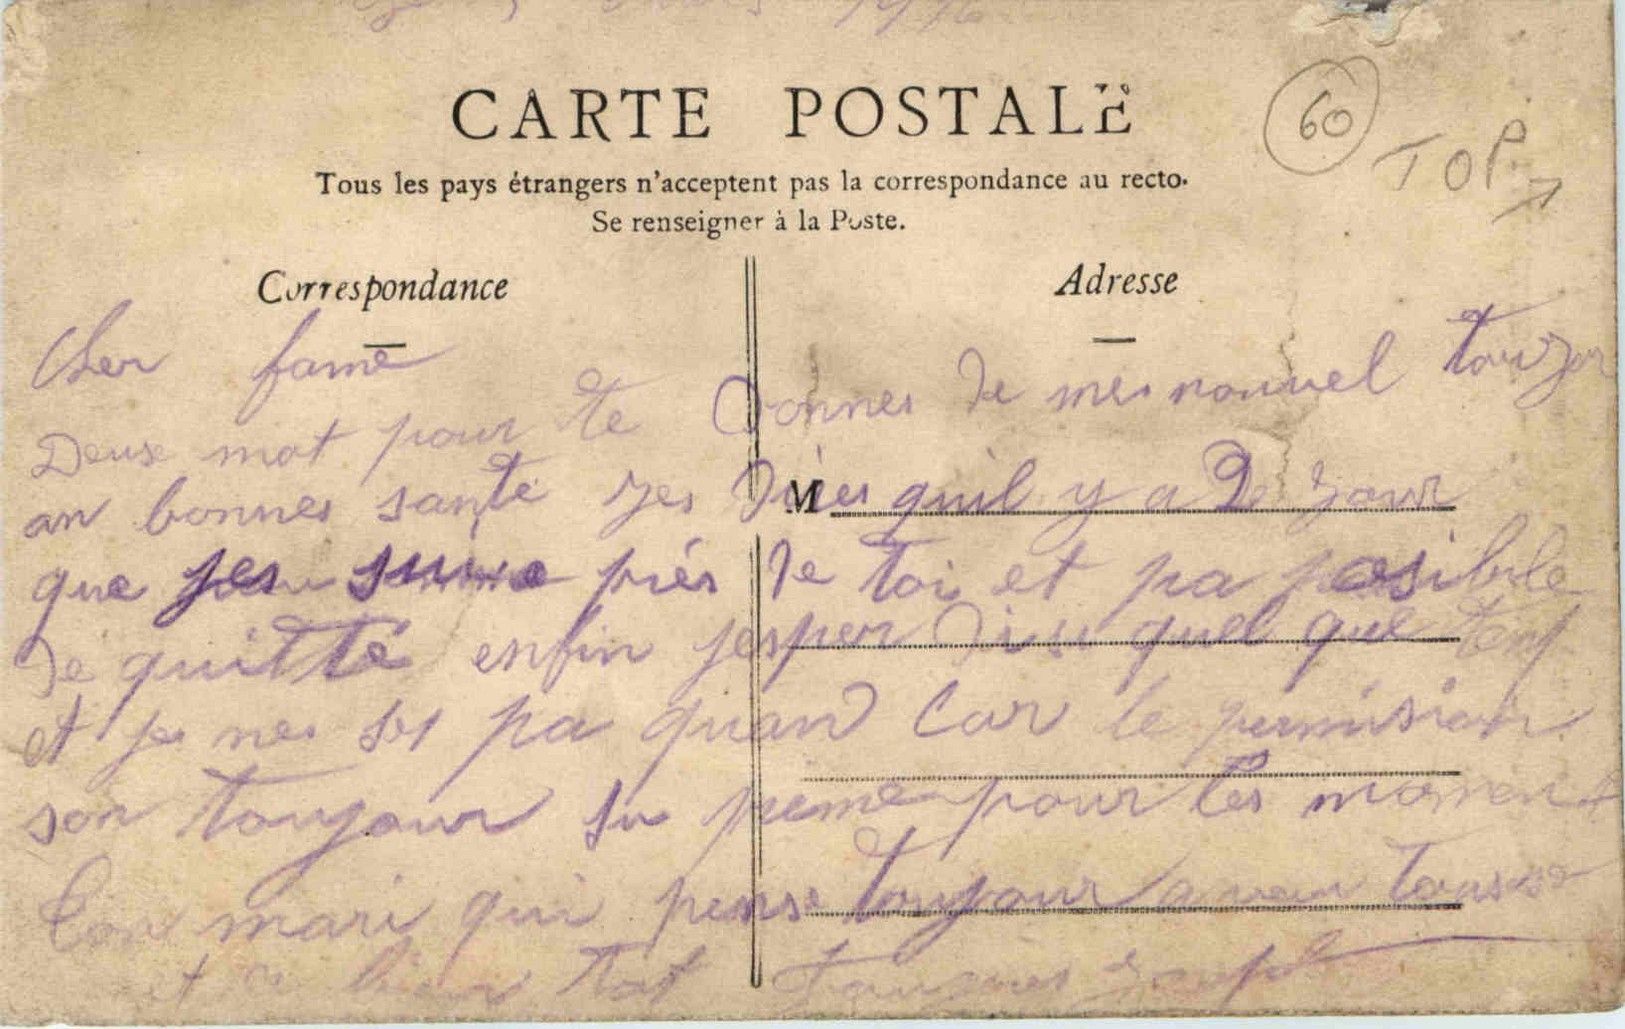 1916
CARTE POSTALE
60
TOP
Tous les pays étrangers n'acceptent pas la correspondance au recto.
Se renseigner à la Poste.
Correspondance
Adresse
M
Cher fame
Deuse mot pour te donner de mes nouvel toujour
an bonnes santé jes quil y a De jour
que jes suise près de toi et pa posibile
de quitté enfin jesper quel que temp
et jes nes ses pa quand Car le permision
son toujour su prime pour les moment
Ton mari qui pense toujour a vou tousse
et a bien tot